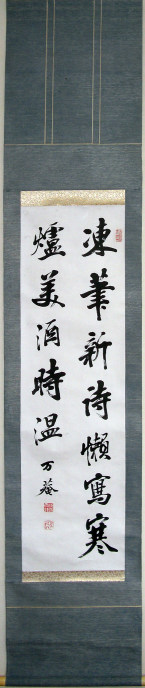 凍筆新詩懶寫寒
爐美酒時温
万菴